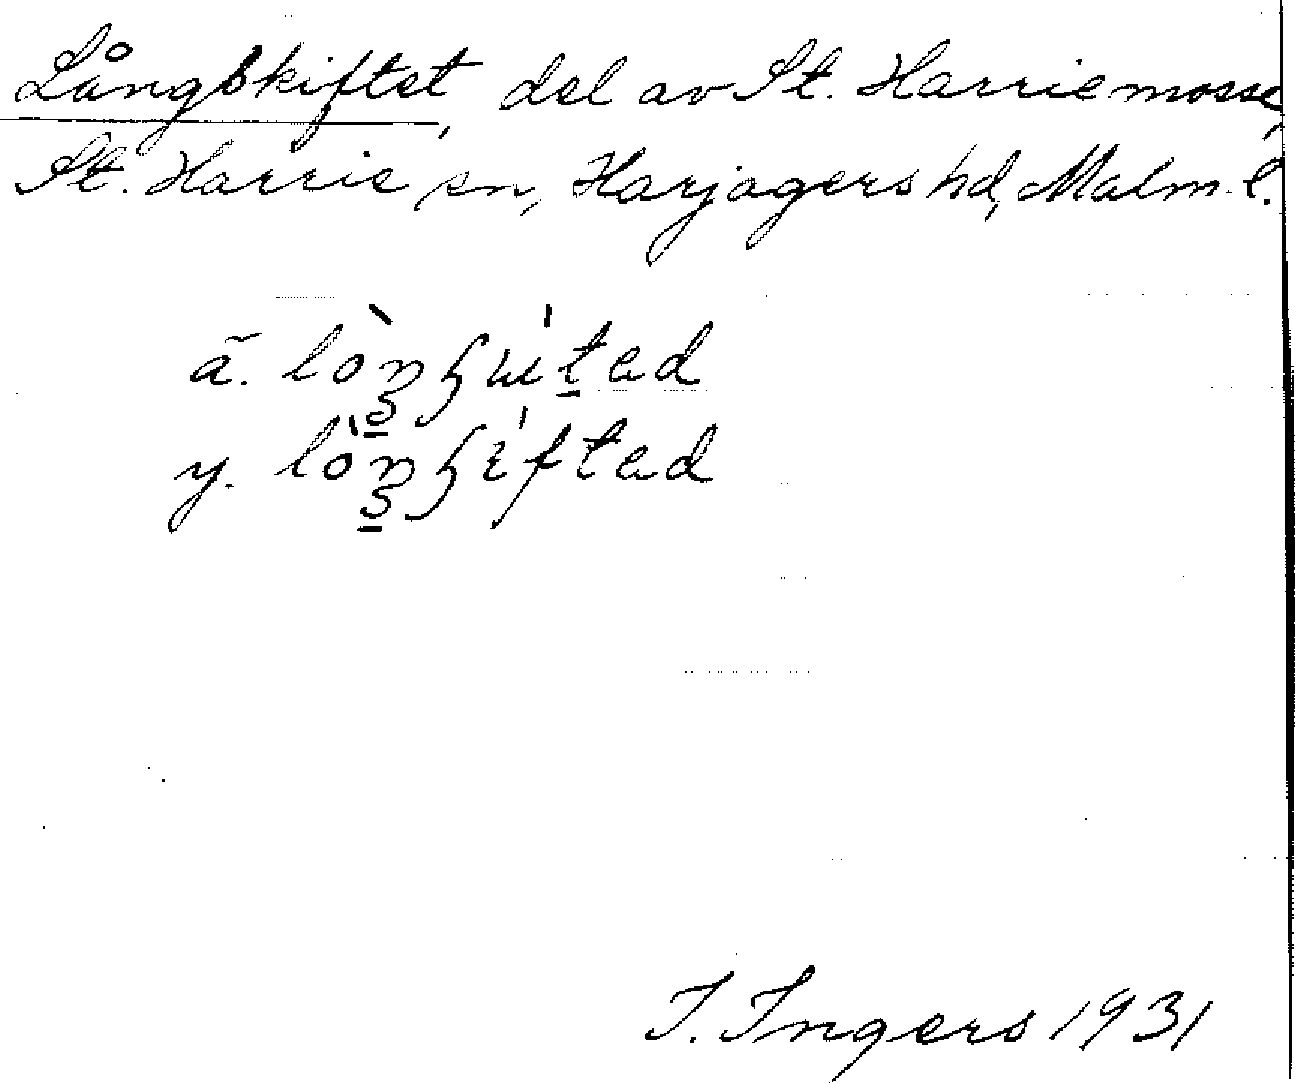 Långskiftet, del av St. Harrie mosse,
St. Harrie sn, Harjagers hd, Malm. l.
ä.
y.
I. Ingers 1931